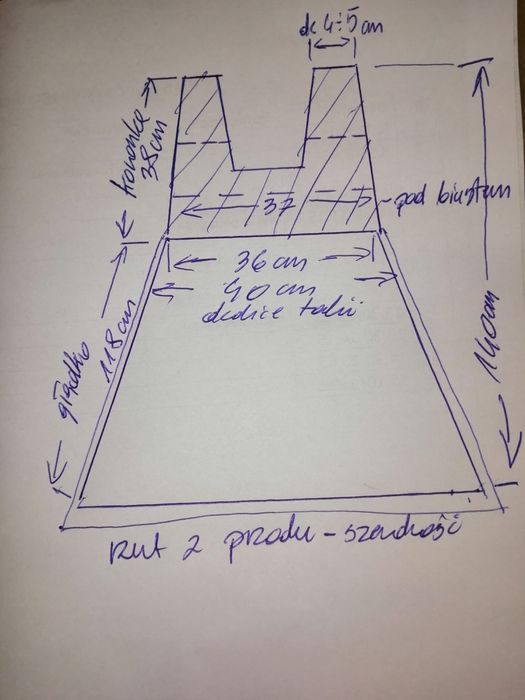 ok 4÷5 cm
koronka
38cm
37
pod biustem
36 cm
40 cm
okolice talii
gładko
118cm
140cm
Rzut z przodu - szerokość